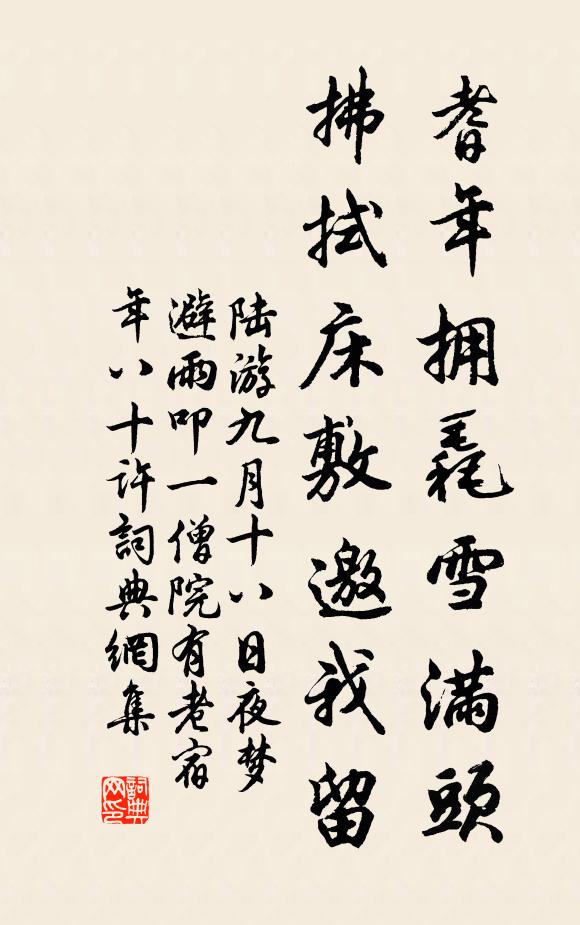 耆年拥毳雪满頭
拂拭床敷邀我留
陆游九月十八日夜梦
避雨叩一僧院有老宿
年八十许詞典網集
詞典网印